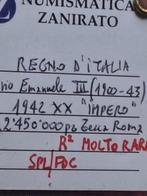 NUMISMATICA
ZANIRATO
REGNO D'ITALIA
Emanuele III (1900-43)
1942 XX "IMPERO"
2'450'000 pz Zecca Roma
R² MOLTO RARA
SPL/FDC